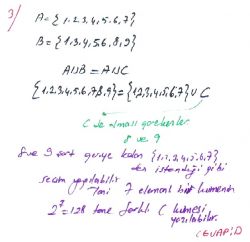 3/ A = {1,2,3,4,5,6,7}
B = {1,3,4,5,6,8,9}
AUB = AUC
{1,2,3,4,5,6,7,8,9} = {1,2,3,4,5,6,7} ∪ C
C de olması gerekenler
8 ve 9
8 ve 9 şart geriye kalan {1,2,3,4,5,6,7}
den istendiği gibi
seçim yapılabilir
Yani 7 elemanlı bir kümenin
2^7 = 128 tane farklı C kümesi
yazılabilir.
CEVAP: D